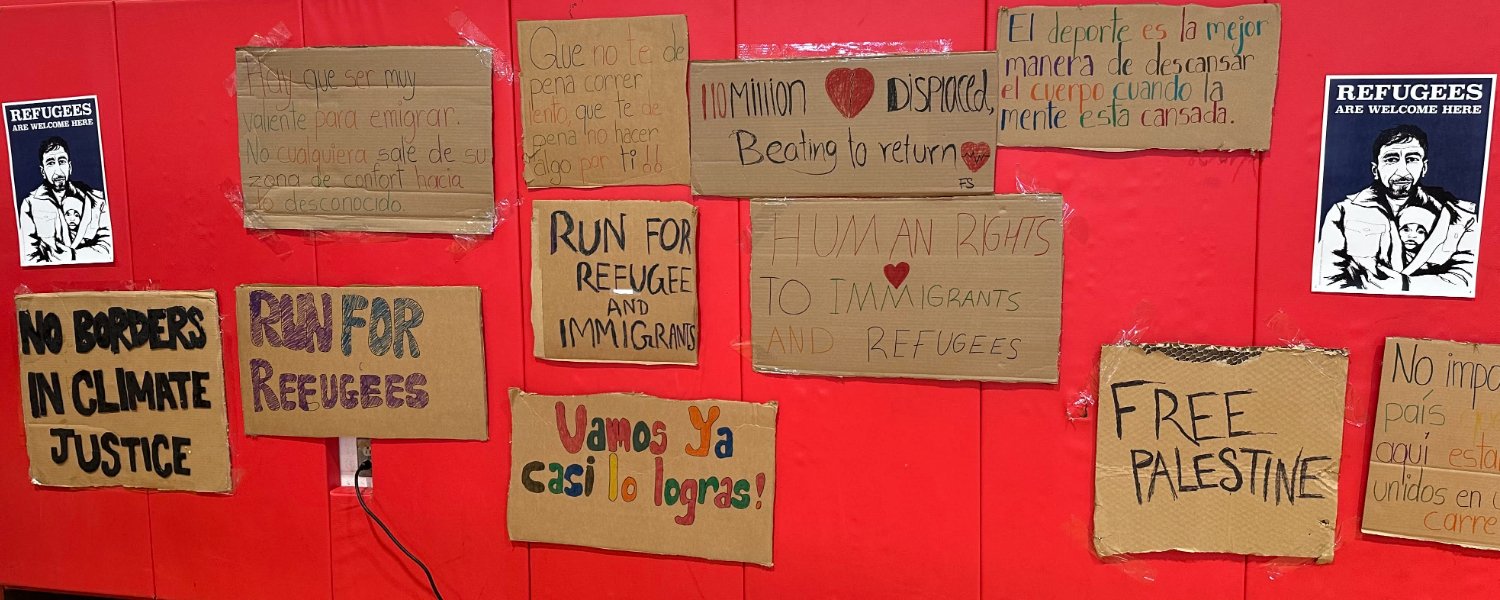 REFUGEES
ARE WELCOME HERE
Hay que ser muy
valiente para emigrar.
No cualquiera sale de su
zona de confort hacia
lo desconocido.
Que no te de
pena correr
lento, que te de
pena no hacer
algo por ti
110 Million ❤ Displaced,
Beating to return
FS
El deporte es la mejor
manera de descansar
el cuerpo cuando la
mente esta cansada.
REFUGEES
ARE WELCOME HERE
NO BORDERS
IN CLIMATE
JUSTICE
RUN FOR
REFUGEES
RUN FOR
REFUGEE
AND
IMMIGRANTS
HUMAN RIGHTS
TO IMMIGRANTS
AND REFUGEES
Vamos Ya
casi lo logras!
FREE
PALESTINE
No impo
país
aquí esta
unidos en
carre